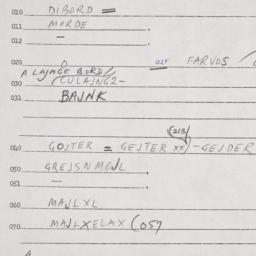 010 DIBORD =
011 MORDE
012 —
020 O 021 FARVOS /
A LAJAGE BORD/
030 (CULAJNG2-
031 BAJNK
(213)
040 GOJTER = GEJTER xx) - GEJDER
050 GREJSNMGJL
051 —
060 MAJLXL
070 MAJLXELAX (057